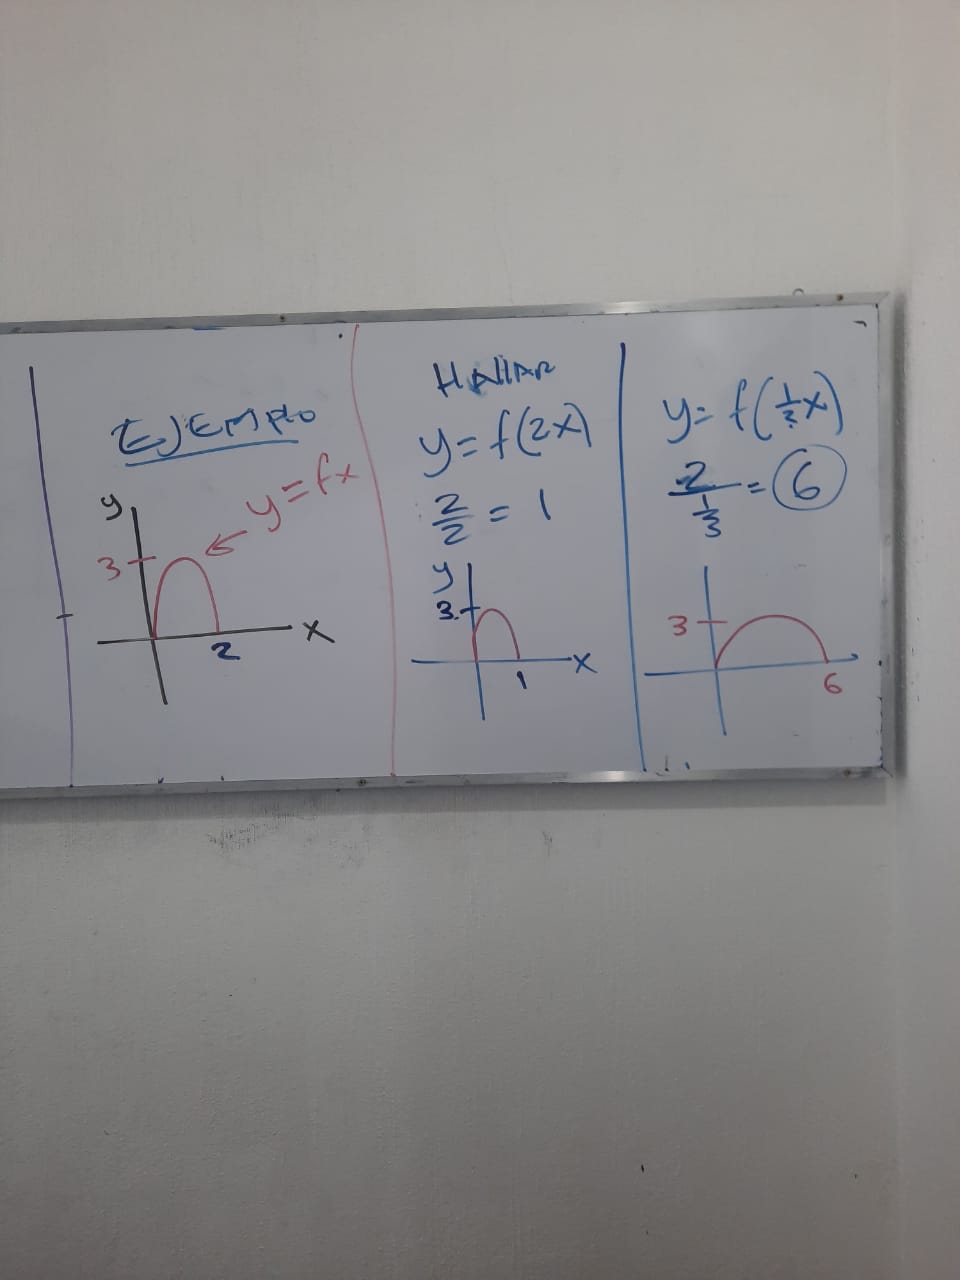 EJEMPLO
y = fx
y
3
x
2
HALLAR
y = f(2x)
2/2 = 1
y
3
x
1
y = f(1/3 x)
2/(1/3) = 6
3
6